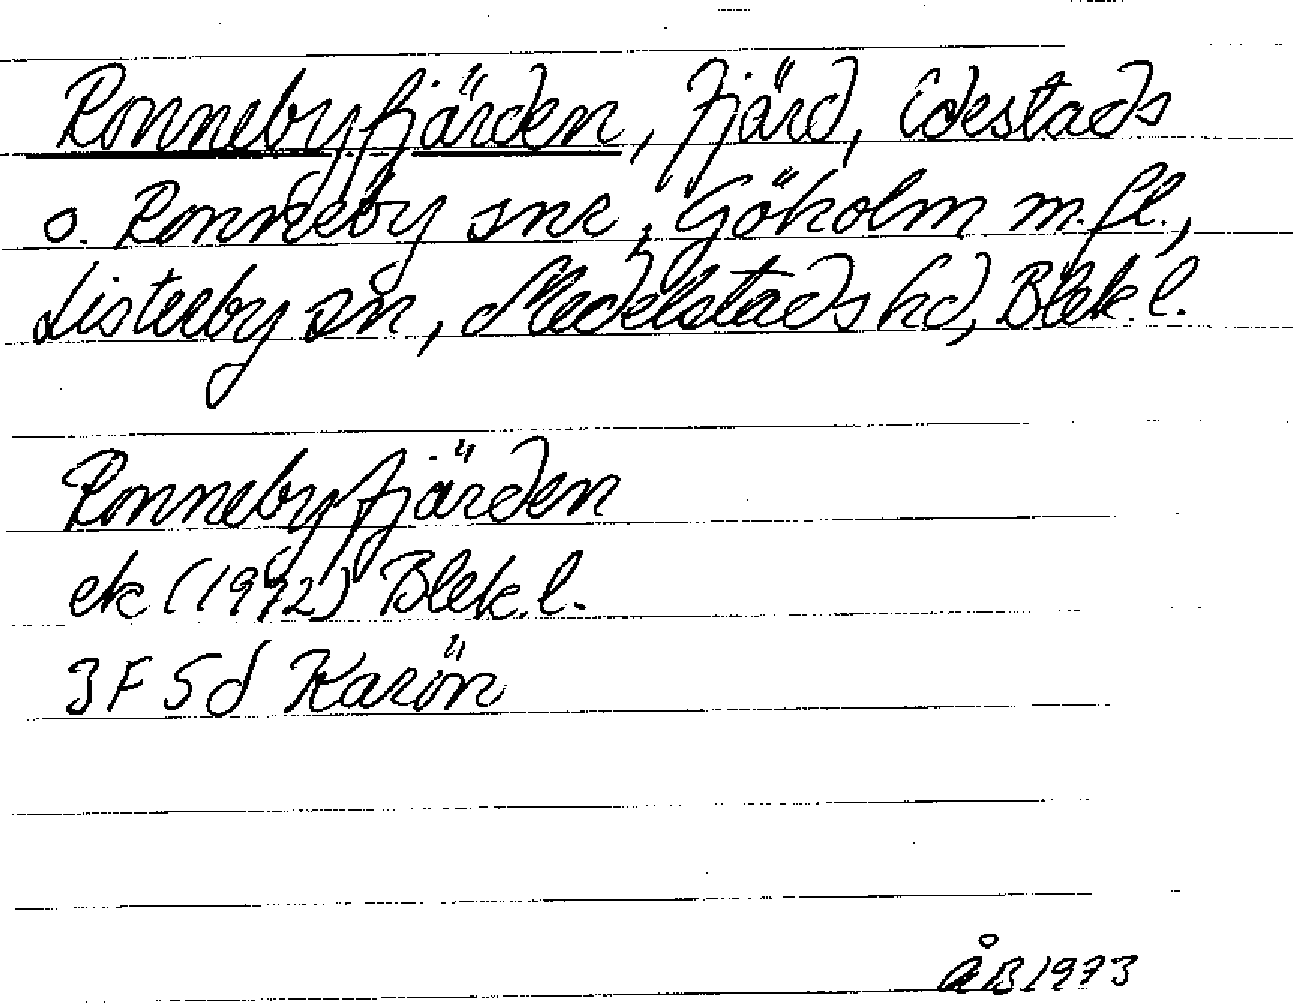 Ronnebyfjärden, fjärd, Edestads
o. Ronneby snr, Göholm m.fl.,
Listerby sn, Medelstads hd, Blek. l.
Ronnebyfjärden
ek (1972) Blek. l.
3F 5d Karön
ÅB 1973